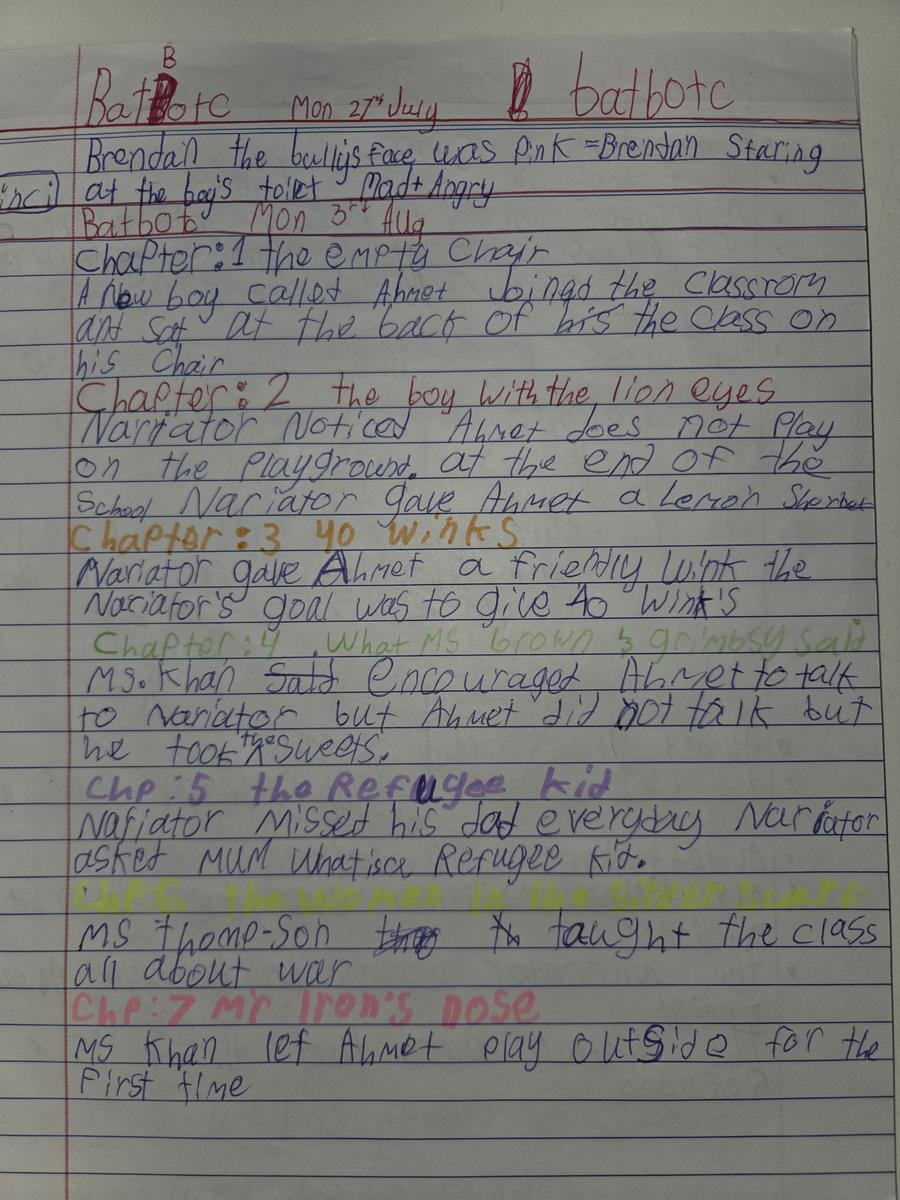 B
Batbotc Mon 27th July batbotc
Brendan the bullys face was Pink =Brendan Staring
inci at the boy's toilet Mad+Angry
Batbotc Mon 3rd Aug
Chapter:1 the empty Chair
A New boy called Ahmet Joingd the Classrom
and sat at the back of his the class on
his Chair
Chapter:2 the boy with the lion eyes
Narriator Noticed Ahmet does not Play
on the Playground. at the end of the
School Nariator gave Ahmet a Lemon Sherbet
Chapter:3 40 winks
Nariator gave Ahmet a friendly wink the
Nariator's goal was to give 40 wink's
Chapter:4 .What MS brown & grimbsy said
Ms.Khan Said encouraged Ahmet to talk
to Nariator but Ahmet did not talk but
he took the sweets.
Chp:5 the Refugee kid
Nariator Missed his dad everyday Nariator
asked MUM What is a Refugee kid.
Chp:6 the woman in the Silver scarf
MS thomp-Son taught the class
all about war
Chp:7 Mr Iron's nose
MS Khan let Ahmet play outside for the
First time